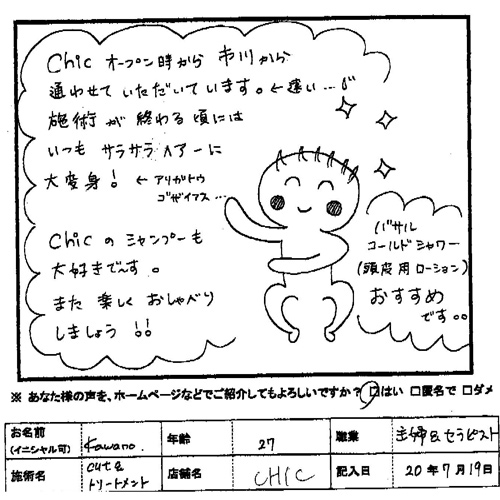 Chic オープン時から 市川から
通わせていただいています。←遠い…!!
施術が終わる頃には
いつもサラサラヘアーに
大変身！ ←アリガトウ
ゴザイマス…
Chicのシャンプーも
大好きでーす。
また楽しくおしゃべり
しましょう!!
バサル
コールドシャワー
(頭皮用ローション)
おすすめ
です。。
※ あなた様の声を、ホームページなどでご紹介してもよろしいですか？ □はい □匿名で □ダメ
お名前 (イニシャル可) Kawano. 年齢 27 職業 主婦&セラピスト
施術名 cut& トリートメント 店舗名 CHIC 記入日 20年7月19日